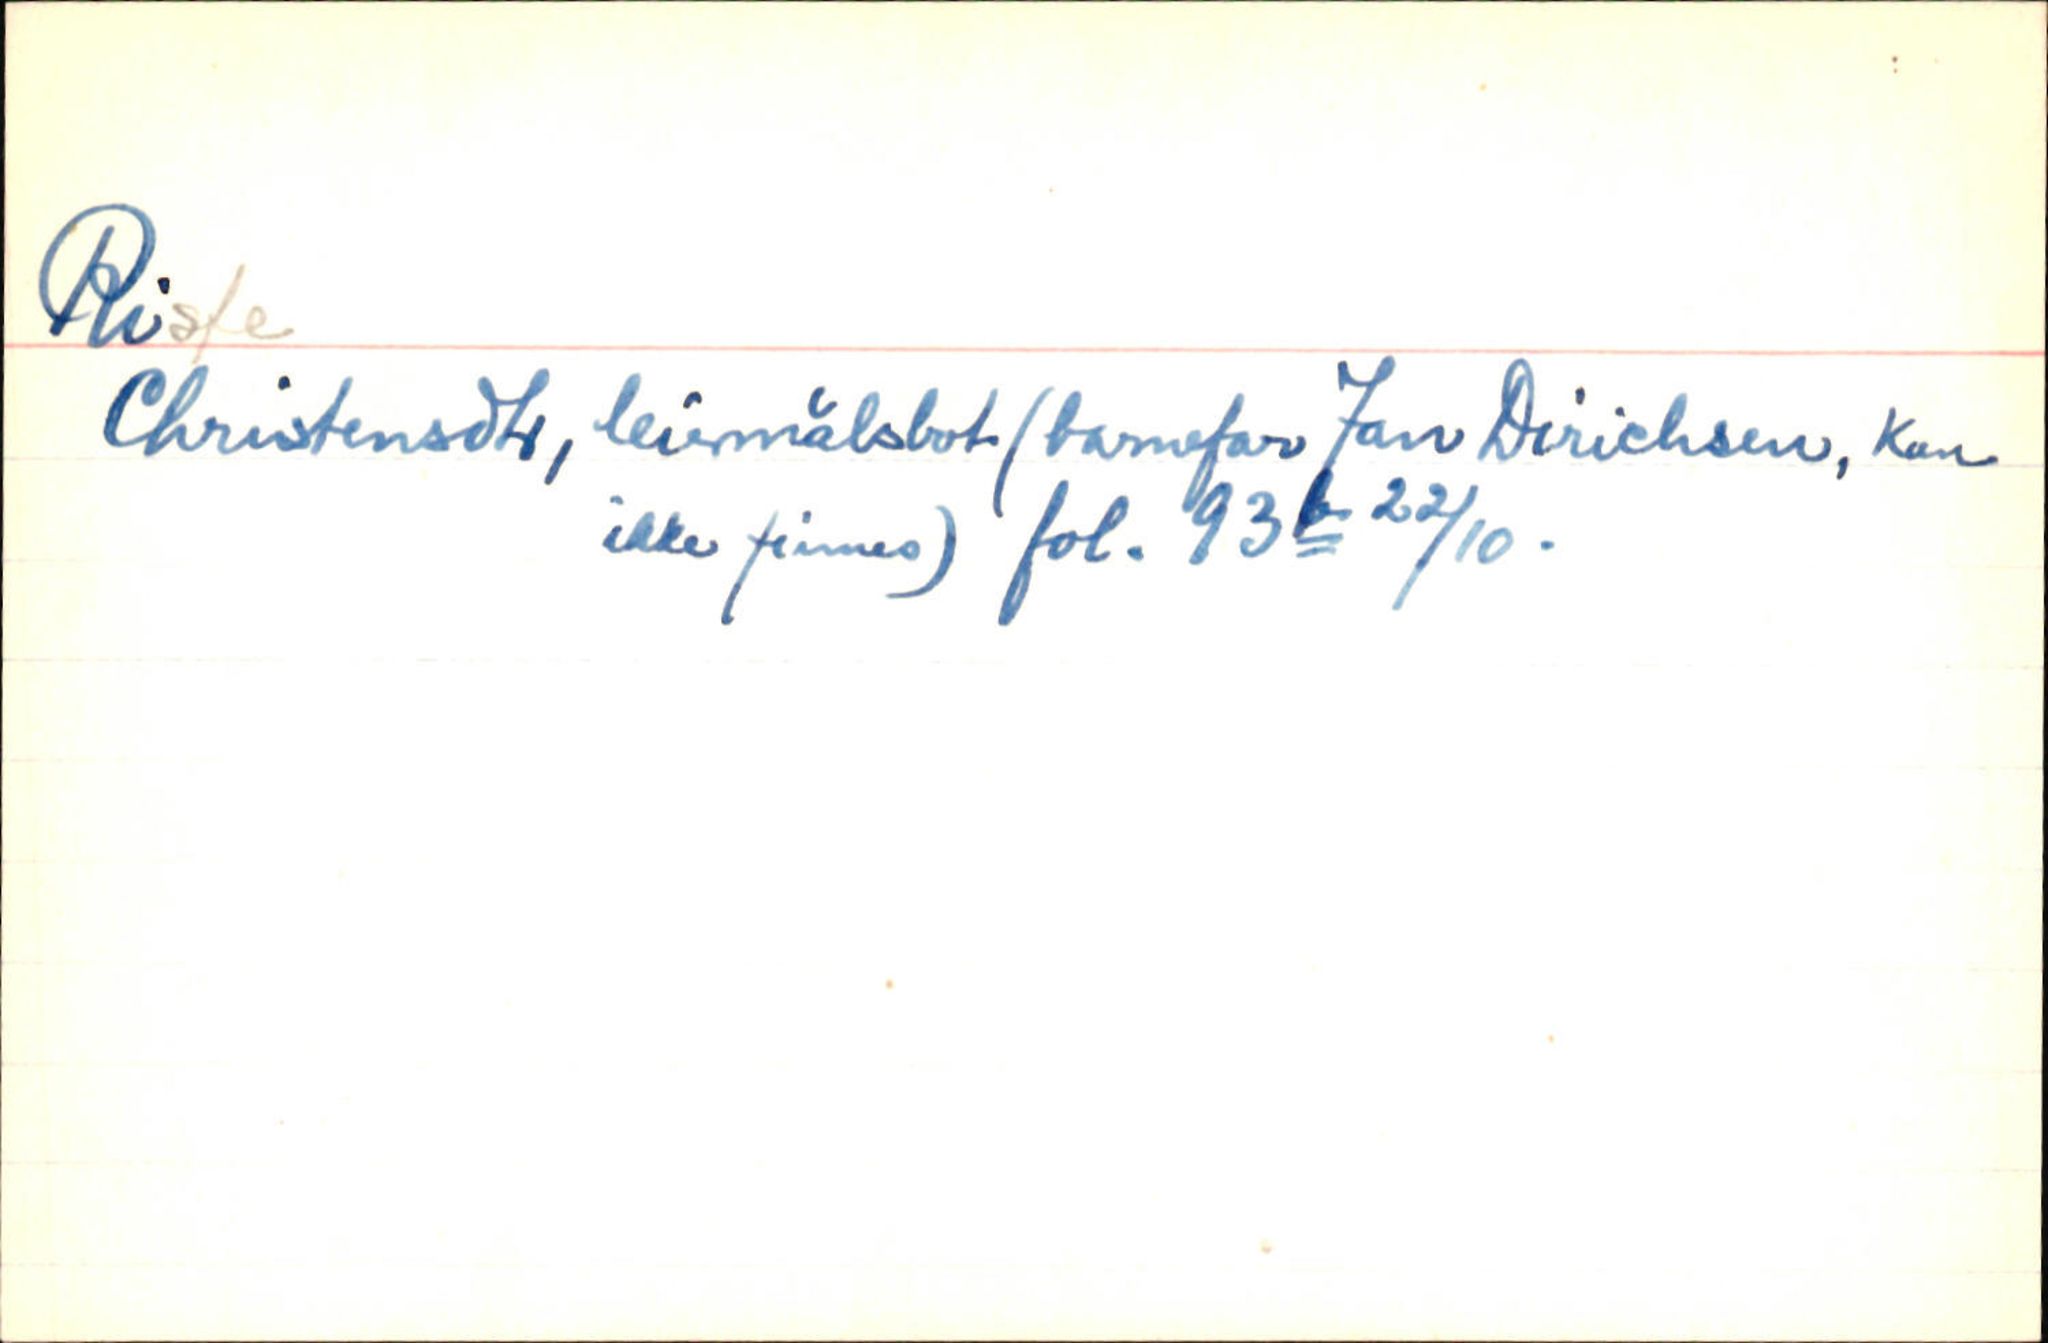 Riste
Christensdtr, leiermålsbot (barnefar Jan Dirichsen, kan
ikke finnes) fol. 93b 22/10.